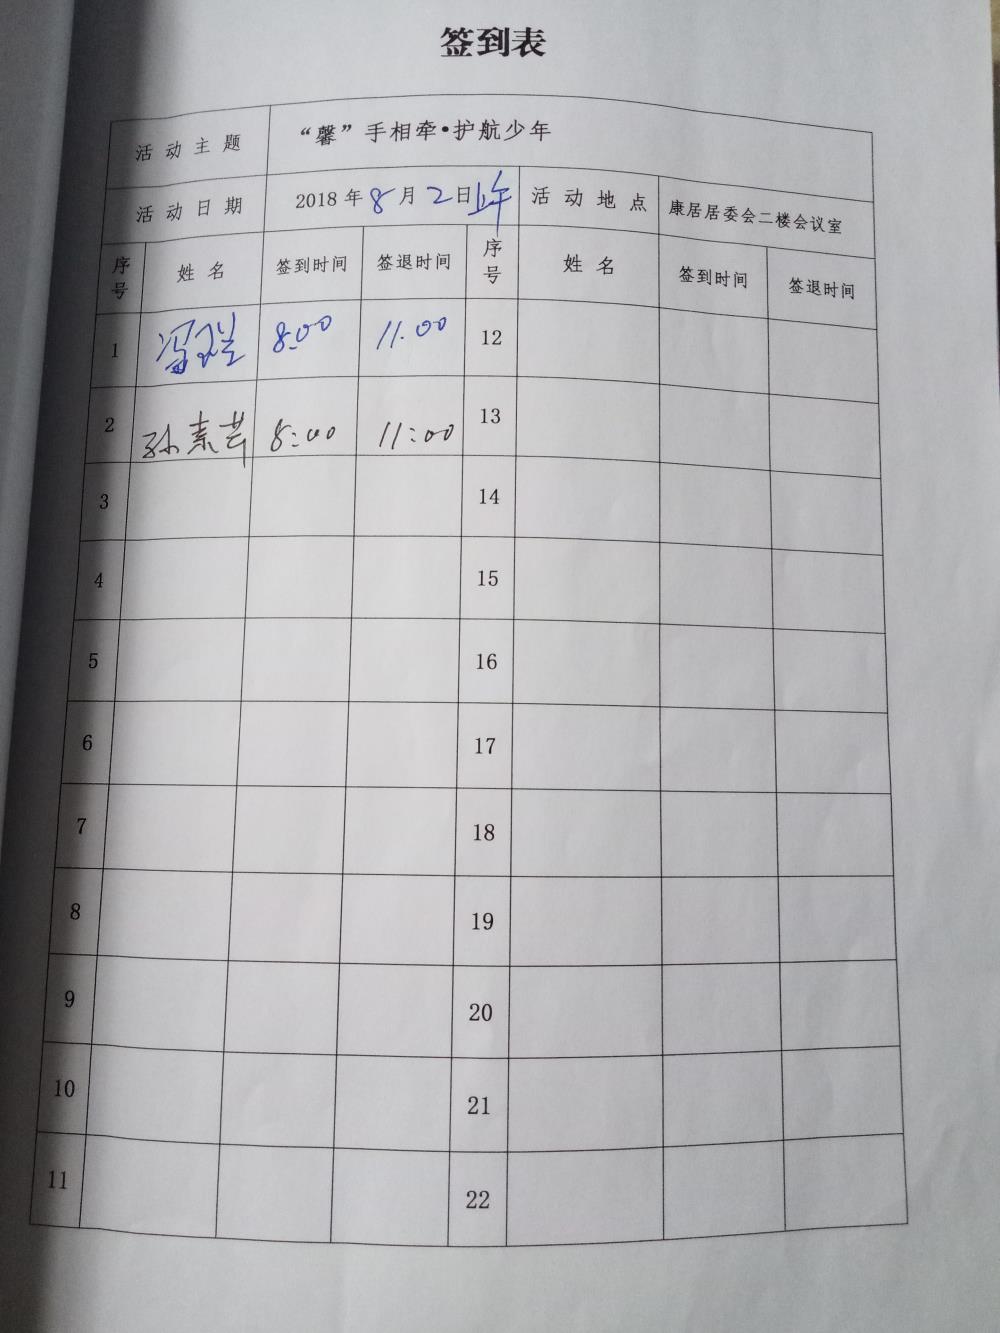 签到表
活动主题 “馨”手相牵·护航少年
活动日期 2018年8月2日上午 活动地点 康居居委会二楼会议室
序号 姓名 签到时间 签退时间 序号 姓名 签到时间 签退时间
1 冯瑾 8:00 11.00 12
2 孙素芸 8:00 11:00 13
3 14
4 15
5 16
6 17
7 18
8 19
9 20
10 21
11 22